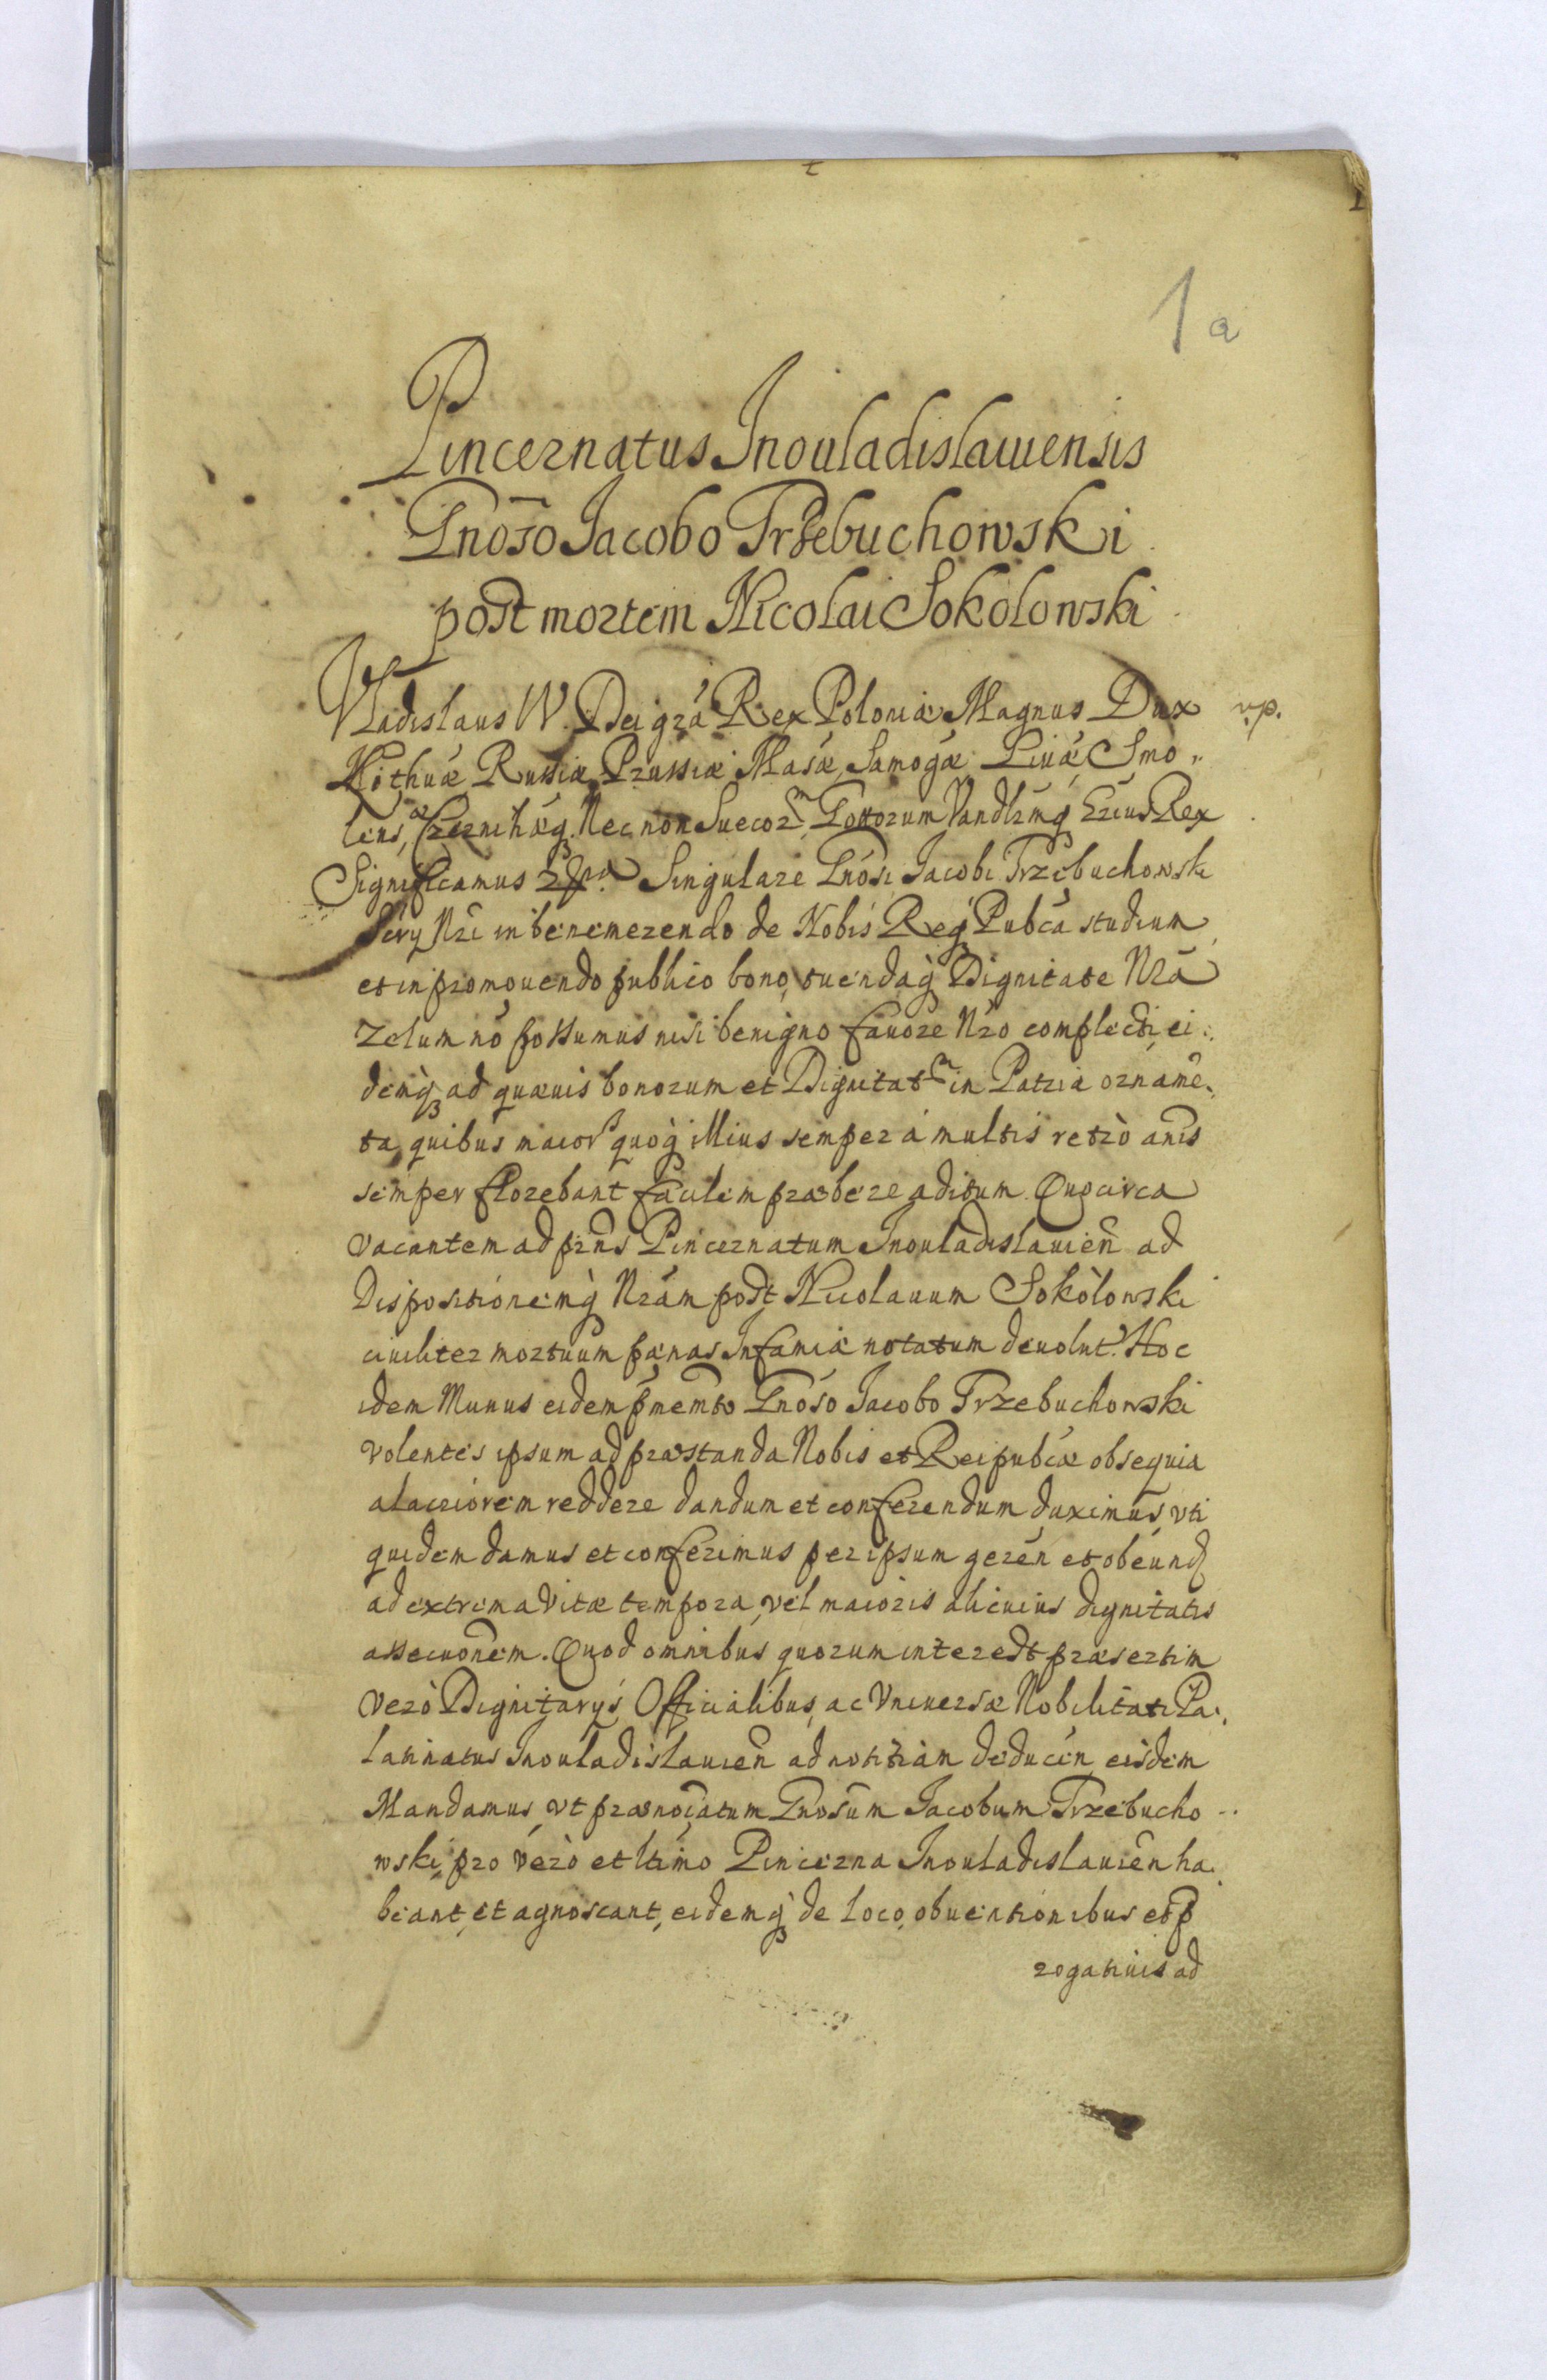 1
1a
Pincernatus Inouladislauiensis
Gnōso Jacobo Trzebuchowski
post mortem Nicolai Sokolowski
Vladislaus IV. Dei grá Rex Poloniæ Magnus Dux
vp.
Lithuæ Russiæ Prussiæ Masæ Samogæ Liuæ Smo„
lens, Czernihæq. Nec non Suecor Gottorum Vandlrmq Ereus Rex
Significamus Singulare Gnósi Jacobi Trzebuchowski
Nri in benemerendo de Nobis Reqꝫ Pubcá studium
et in promouendo publico bono, tuendaq Dignitate Nrá
Zelum nó possumus nisi benigno fauore Nro complecti, ei„
demqꝫ ad quæuis bonorum et Dignitat in Patria orname„
ta, quibus maior quoq illius semper á multis retrò anis
semper florebant facilem præbere aditum. Quocirca
vacantem ad prns Pincernatum Inouladislauień ad
Dispositionemq Nrám post Nicolauum Sokolowski
ciuiliter mortuum pænas Infamiæ notatum deuolut. Hoc
idem Munus eidem pnemto Gnóso Jacobo Trzebuchowski
volentes ipsum ad præstanda Nobis et Reipubcæ obsequia
alacriorem reddere dandum et conferendum duximus, vti
quidem damus et conferimus per ipsum geren et obeund
ad extrema Vitæ tempora, vel maioris alicuius dignitatis
assecuonem. Quod omnibus quorum interest præsertim
verò Dignitarys Officialibus, ac Vniuersæ Nobilitati Pa„
latinatus Inouladislauień ad notitiam deducen, eisdem
Mandamus, vt prænotatum Gnosum Jacobum Trzebucho„
wski pro verò et ltimo Pincerna Inouladislauień ha„
beant, et agnoscant, eidemqꝫ de loco, obuentionibus et p
rogatiuis ad